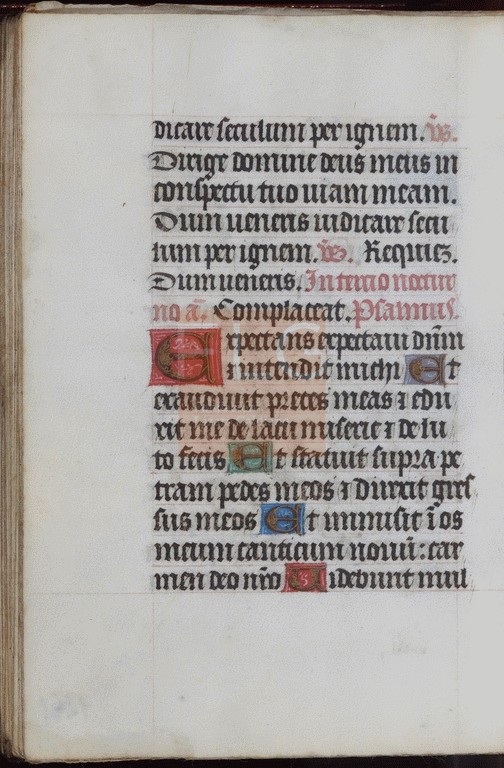 dicare seculum per ignem. v̄s.
Dirige domine deus meus in
conspectu tuo uiam meam.
Dum ueneris iudicare secu
lum per ignem. v̄s. Requiē.
Dum ueneris. In tercio noctur
no a͞. Complaceat. Psalmus.
Expectans expectaui dn̄m
⁊ intendit michi Et
exaudiuit preces meas ⁊ edu
xit me de lacu miserie ⁊ de lu
to fecis Et statuit supra pe
tram pedes meos ⁊ direxit gres
sus meos Et inmisit ī os
meum canticum nouū: car
men deo nr̄o Uidebunt mul